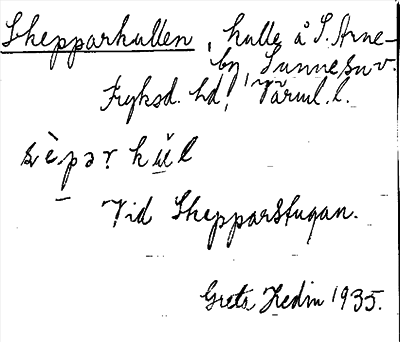 Skepparkullen, kulle å S. Arne-
by, Sunne sn v.
Fryksd. hd, Värml. l.
Vid Skepparstugan.
Greta Hedin 1935.